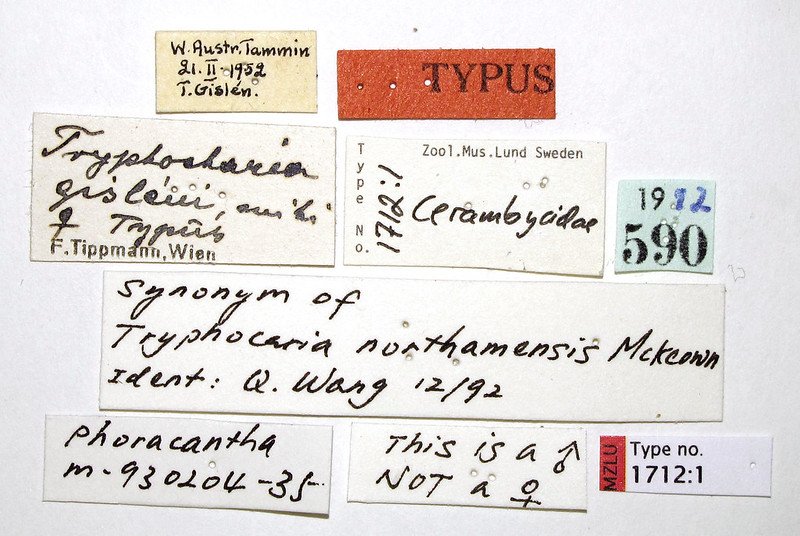 W. Austr. Tammin
21. II. 1952
T. Gislén.
TYPUS
Tryphocharia
gisléni, mihi
♀ Typus
F. Tippmann, Wien
Type No.
1712:1
Zool.Mus.Lund Sweden
Cerambycidae
1982
590
Synonym of
Tryphocaria northamensis McKeown
Ident: Q. Wang 12/92
Phoracantha
m-930204-35
This is a ♂
NOT a ♀
MZLU
Type no.
1712:1